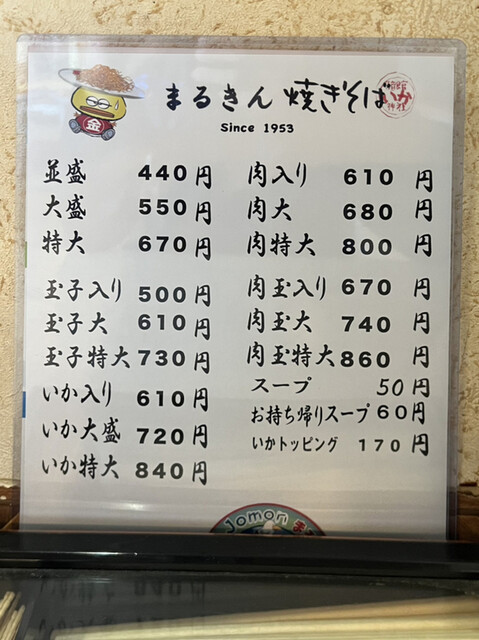 まるきん 焼きそば
Since 1953
金
並盛 440円
大盛 550円
特大 670円
玉子入り 500円
玉子大 610円
玉子特大 730円
いか入り 610円
いか大盛 720円
いか特大 840円
肉入り 610円
肉大 680円
肉特大 800円
肉玉入り 670円
肉玉大 740円
肉玉特大 860円
スープ 50円
お持ち帰りスープ 60円
いかトッピング 170円
Jomon